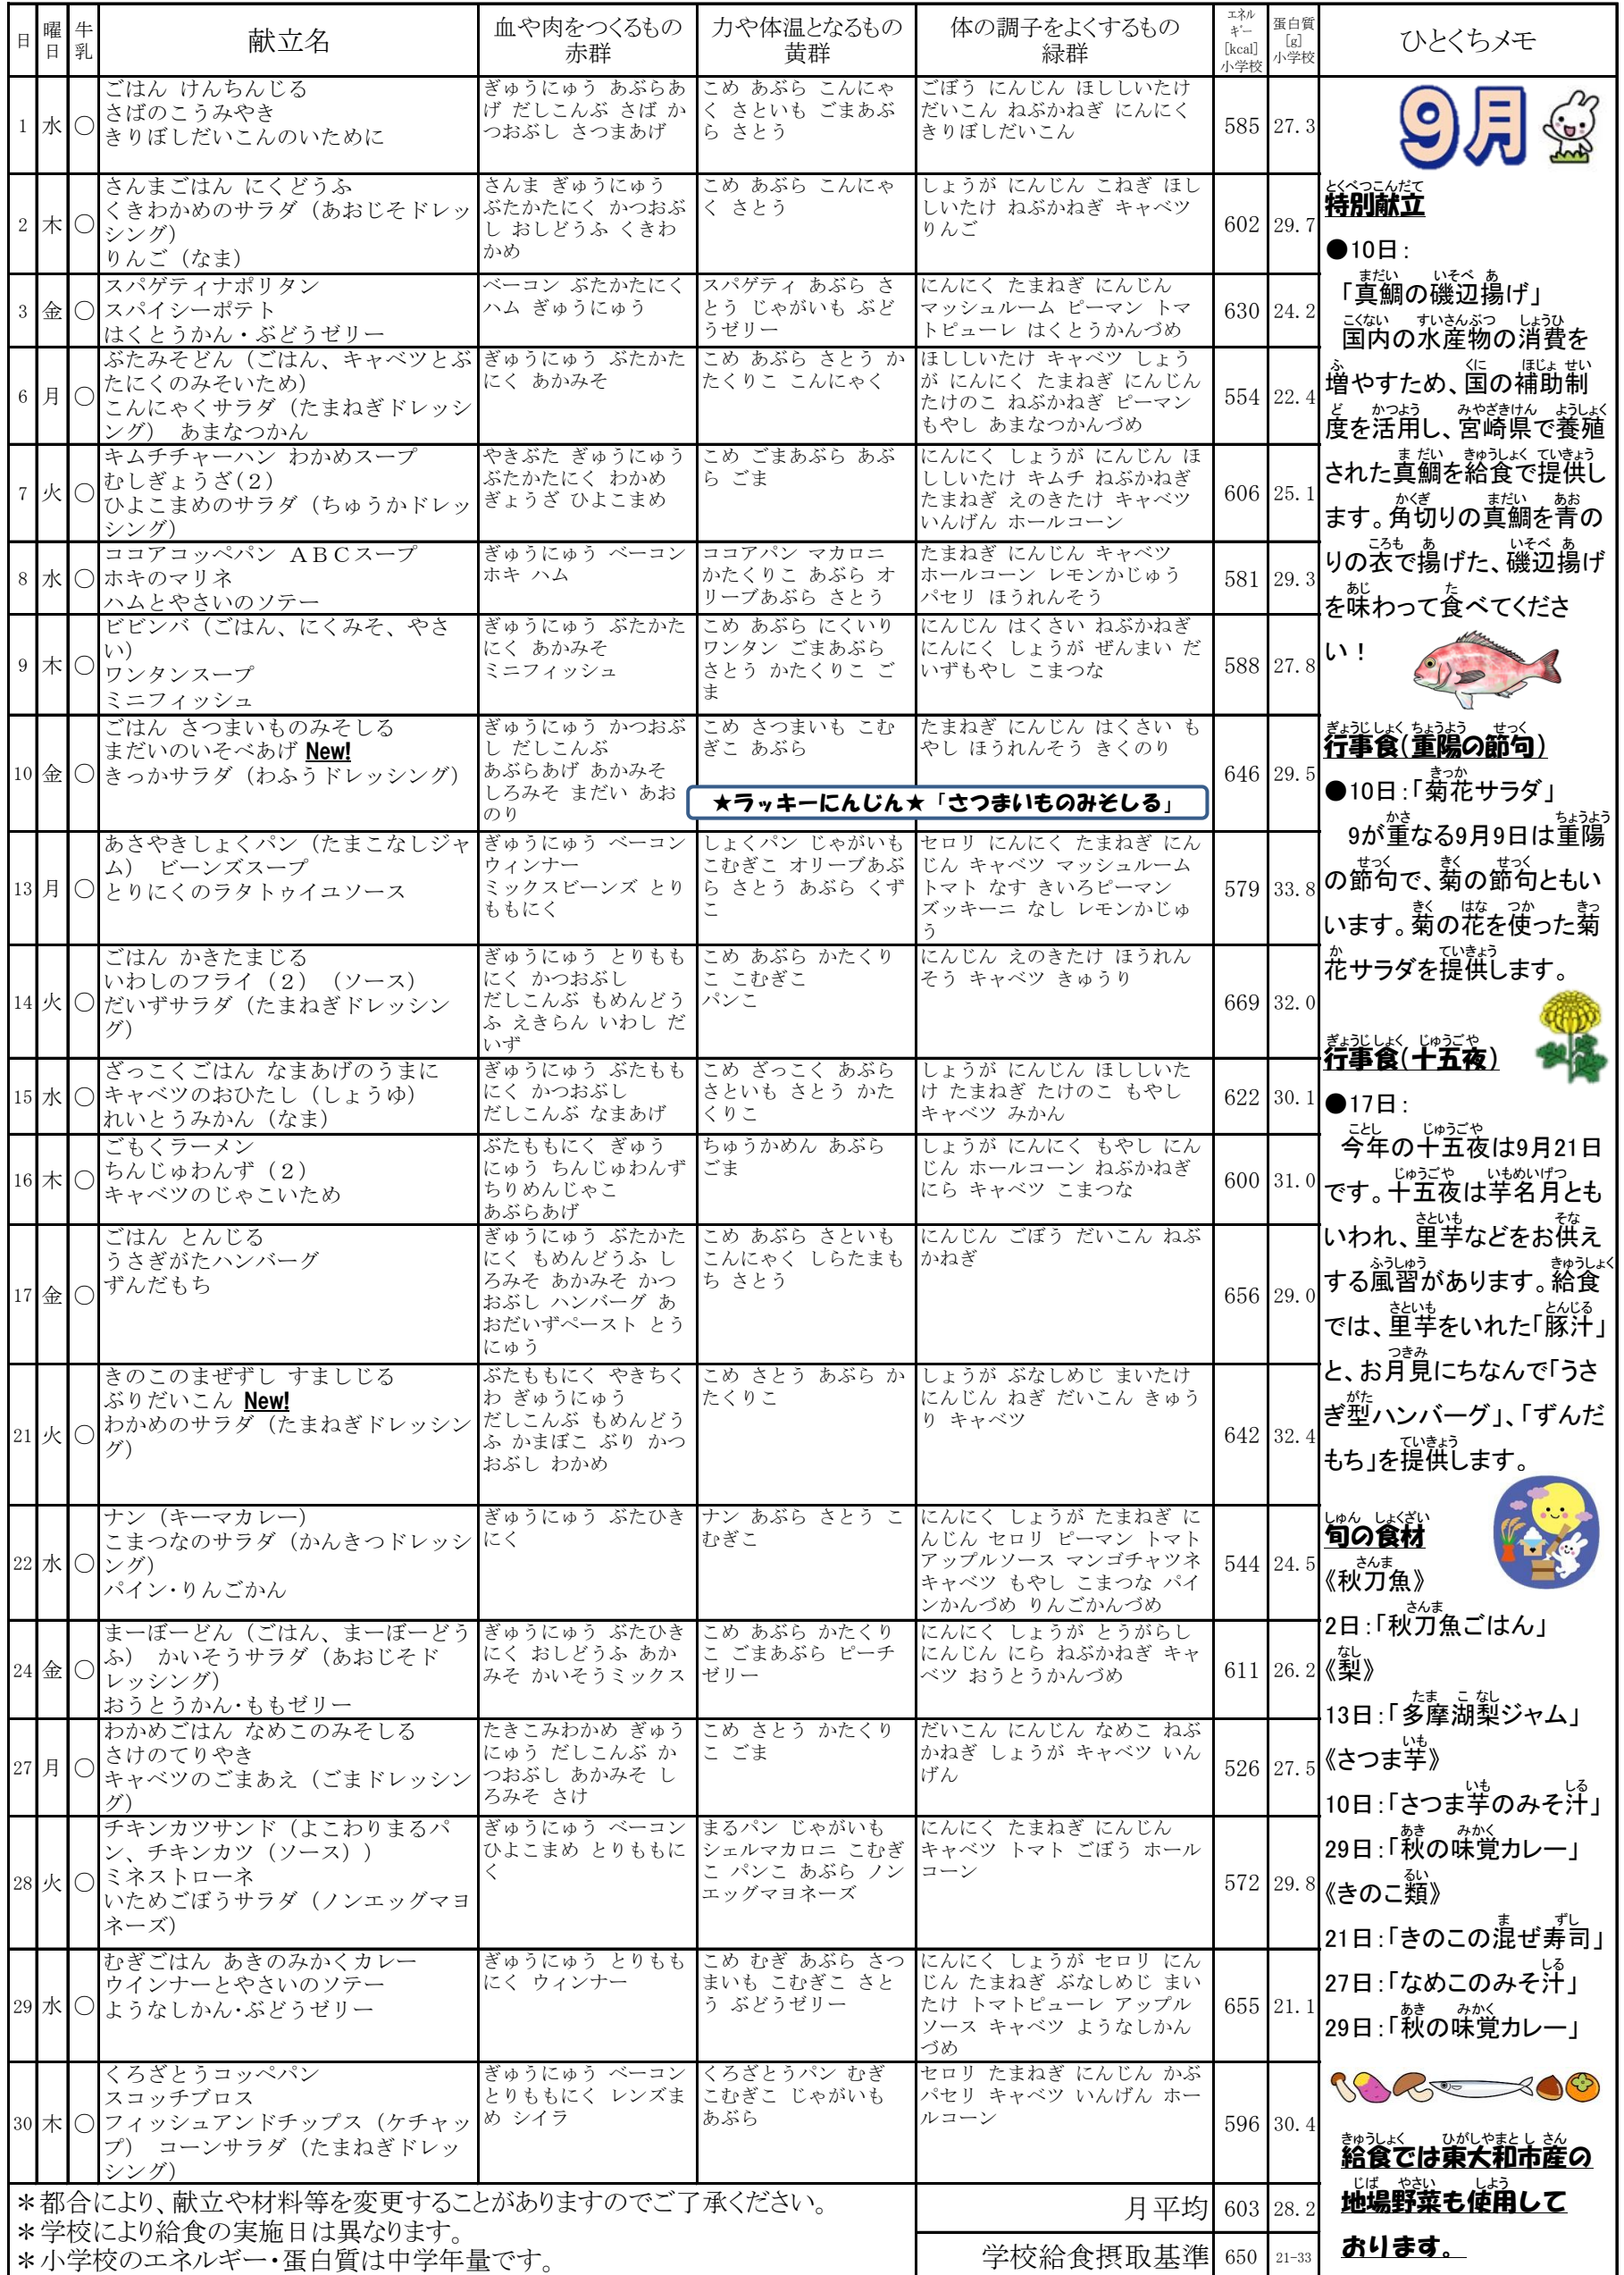 日 曜日 牛乳 献立名 血や肉をつくるもの 赤群 力や体温となるもの 黄群 体の調子をよくするもの 緑群 エネルギー [kcal] 小学校 蛋白質 [g] 小学校 ひとくちメモ
1 水 ○
ごはん けんちんじる
さばのこうみやき
きりぼしだいこんのいために
ぎゅうにゅう あぶらあ
げ だしこんぶ さば か
つおぶし さつまあげ
こめ あぶら こんにゃ
く さといも ごまあぶ
ら さとう
ごぼう にんじん ほししいたけ
だいこん ねぶかねぎ にんにく
きりぼしだいこん
585 27.3
2 木 ○
さんまごはん にくどうふ
くきわかめのサラダ（あおじそドレッ
シング）
りんご（なま）
さんま ぎゅうにゅう
ぶたかたにく かつおぶ
し おしどうふ くきわ
かめ
こめ あぶら こんにゃ
く さとう
しょうが にんじん こねぎ ほし
しいたけ ねぶかねぎ キャベツ
りんご
602 29.7
3 金 ○
スパゲティナポリタン
スパイシーポテト
はくとうかん・ぶどうゼリー
ベーコン ぶたかたにく
ハム ぎゅうにゅう
スパゲティ あぶら さ
とう じゃがいも ぶど
うゼリー
にんにく たまねぎ にんじん
マッシュルーム ピーマン トマ
トピューレ はくとうかんづめ
630 24.2
6 月 ○
ぶたみそどん（ごはん、キャベツとぶ
たにくのみそいため）
こんにゃくサラダ（たまねぎドレッシ
ング） あまなつかん
ぎゅうにゅう ぶたかた
にく あかみそ
こめ あぶら さとう か
たくりこ こんにゃく
ほししいたけ キャベツ しょう
が にんにく たまねぎ にんじん
たけのこ ねぶかねぎ ピーマン
もやし あまなつかんづめ
554 22.4
7 火 ○
キムチチャーハン わかめスープ
むしぎょうざ(２)
ひよこまめのサラダ（ちゅうかドレッ
シング）
やきぶた ぎゅうにゅう
ぶたかたにく わかめ
ぎょうざ ひよこまめ
こめ ごまあぶら あぶ
ら ごま
にんにく しょうが にんじん ほ
ししいたけ キムチ ねぶかねぎ
たまねぎ えのきたけ キャベツ
いんげん ホールコーン
606 25.1
8 水 ○
ココアコッペパン ＡＢＣスープ
ホキのマリネ
ハムとやさいのソテー
ぎゅうにゅう ベーコン
ホキ ハム
ココアパン マカロニ
かたくりこ あぶら オ
リーブあぶら さとう
たまねぎ にんじん キャベツ
ホールコーン レモンかじゅう
パセリ ほうれんそう
581 29.3
9 木 ○
ビビンバ（ごはん、にくみそ、やさ
い）
ワンタンスープ
ミニフィッシュ
ぎゅうにゅう ぶたかた
にく あかみそ
ミニフィッシュ
こめ あぶら にくいり
ワンタン ごまあぶら
さとう かたくりこ ご
ま
にんじん はくさい ねぶかねぎ
にんにく しょうが ぜんまい だ
いずもやし こまつな
588 27.8
10 金 ○
ごはん さつまいものみそしる
まだいのいそべあげ New!
きっかサラダ（わふうドレッシング）
ぎゅうにゅう かつおぶ
し だしこんぶ
あぶらあげ あかみそ
しろみそ まだい あお
のり
こめ さつまいも こむ
ぎこ あぶら
たまねぎ にんじん はくさい も
やし ほうれんそう きくのり
★ラッキーにんじん★「さつまいものみそしる」
646 29.5
13 月 ○
あさやきしょくパン（たまこなしジャ
ム） ビーンズスープ
とりにくのラタトゥイユソース
ぎゅうにゅう ベーコン
ウィンナー
ミックスビーンズ とり
ももにく
しょくパン じゃがいも
こむぎこ オリーブあぶ
ら さとう あぶら くず
こ
セロリ にんにく たまねぎ にん
じん キャベツ マッシュルーム
トマト なす きいろピーマン
ズッキーニ なし レモンかじゅ
う
579 33.8
14 火 ○
ごはん かきたまじる
いわしのフライ（２）（ソース）
だいずサラダ（たまねぎドレッシン
グ）
ぎゅうにゅう とりもも
にく かつおぶし
だしこんぶ もめんどう
ふ えきらん いわし だ
いず
こめ あぶら かたくり
こ こむぎこ
パンこ
にんじん えのきたけ ほうれん
そう キャベツ きゅうり
669 32.0
15 水 ○
ざっこくごはん なまあげのうまに
キャベツのおひたし（しょうゆ）
れいとうみかん（なま）
ぎゅうにゅう ぶたもも
にく かつおぶし
だしこんぶ なまあげ
こめ ざっこく あぶら
さといも さとう かた
くりこ
しょうが にんじん ほししいた
け たまねぎ たけのこ もやし
キャベツ みかん
622 30.1
16 木 ○
ごもくラーメン
ちんじゅわんず（２）
キャベツのじゃこいため
ぶたももにく ぎゅう
にゅう ちんじゅわんず
ちりめんじゃこ
あぶらあげ
ちゅうかめん あぶら
ごま
しょうが にんにく もやし にん
じん ホールコーン ねぶかねぎ
にら キャベツ こまつな
600 31.0
17 金 ○
ごはん とんじる
うさぎがたハンバーグ
ずんだもち
ぎゅうにゅう ぶたかた
にく もめんどうふ し
ろみそ あかみそ かつ
おぶし ハンバーグ あ
おだいずペースト とう
にゅう
こめ あぶら さといも
こんにゃく しらたまも
ち さとう
にんじん ごぼう だいこん ねぶ
かねぎ
656 29.0
21 火 ○
きのこのまぜずし すましじる
ぶりだいこん New!
わかめのサラダ（たまねぎドレッシン
グ）
ぶたももにく やきちく
わ ぎゅうにゅう
だしこんぶ もめんどう
ふ かまぼこ ぶり かつ
おぶし わかめ
こめ さとう あぶら か
たくりこ
しょうが ぶなしめじ まいたけ
にんじん ねぎ だいこん きゅう
り キャベツ
642 32.4
22 水 ○
ナン（キーマカレー）
こまつなのサラダ（かんきつドレッシ
ング）
パイン・りんごかん
ぎゅうにゅう ぶたひき
にく
ナン あぶら さとう こ
むぎこ
にんにく しょうが たまねぎ に
んじん セロリ ピーマン トマト
アップルソース マンゴチャツネ
キャベツ もやし こまつな パイ
ンかんづめ りんごかんづめ
544 24.5
24 金 ○
まーぼーどん（ごはん、まーぼーどう
ふ） かいそうサラダ（あおじそド
レッシング）
おうとうかん・ももゼリー
ぎゅうにゅう ぶたひき
にく おしどうふ あか
みそ かいそうミックス
こめ あぶら かたくり
こ ごまあぶら ピーチ
ゼリー
にんにく しょうが とうがらし
にんじん にら ねぶかねぎ キャ
ベツ おうとうかんづめ
611 26.2
27 月 ○
わかめごはん なめこのみそしる
さけのてりやき
キャベツのごまあえ（ごまドレッシン
グ）
たきこみわかめ ぎゅう
にゅう だしこんぶ か
つおぶし あかみそ し
ろみそ さけ
こめ さとう かたくり
こ ごま
だいこん にんじん なめこ ねぶ
かねぎ しょうが キャベツ いん
げん
526 27.5
28 火 ○
チキンカツサンド（よこわりまるパ
ン、チキンカツ（ソース））
ミネストローネ
いためごぼうサラダ（ノンエッグマヨ
ネーズ）
ぎゅうにゅう ベーコン
ひよこまめ とりももに
く
まるパン じゃがいも
シェルマカロニ こむぎ
こ パンこ あぶら ノン
エッグマヨネーズ
にんにく たまねぎ にんじん
キャベツ トマト ごぼう ホール
コーン
572 29.8
29 水 ○
むぎごはん あきのみかくカレー
ウインナーとやさいのソテー
ようなしかん・ぶどうゼリー
ぎゅうにゅう とりもも
にく ウィンナー
こめ むぎ あぶら さつ
まいも こむぎこ さと
う ぶどうゼリー
にんにく しょうが セロリ にん
じん たまねぎ ぶなしめじ まい
たけ トマトピューレ アップル
ソース キャベツ ようなしかん
づめ
655 21.1
30 木 ○
くろざとうコッペパン
スコッチブロス
フィッシュアンドチップス（ケチャッ
プ） コーンサラダ（たまねぎドレッ
シング）
ぎゅうにゅう ベーコン
とりももにく レンズま
め シイラ
くろざとうパン むぎ
こむぎこ じゃがいも
あぶら
セロリ たまねぎ にんじん かぶ
パセリ キャベツ いんげん ホー
ルコーン
596 30.4
＊都合により、献立や材料等を変更することがありますのでご了承ください。
＊学校により給食の実施日は異なります。
＊小学校のエネルギー・蛋白質は中学年量です。
月平均 603 28.2
学校給食摂取基準 650 21-33
9月
とくべつこんだて
特別献立
●10日：
まだい いそべ あ
「真鯛の磯辺揚げ」
こくない すいさんぶつ しょうひ
国内の水産物の消費を
ふ くに ほじょ せい
増やすため、国の補助制
ど かつよう みやざきけん ようしょく
度を活用し、宮崎県で養殖
まだい きゅうしょく ていきょう
された真鯛を給食で提供し
かくぎ まだい あお
ます。角切りの真鯛を青の
ころも あ いそべ あ
りの衣で揚げた、磯辺揚げ
あじ た
を味わって食べてくださ
い！
ぎょうじしょく ちょうよう せっく
行事食（重陽の節句）
きっか
●10日：「菊花サラダ」
かさ ちょうよう
9が重なる9月9日は重陽
せっく きく せっく
の節句で、菊の節句ともい
きく はな つか きっ
います。菊の花を使った菊
か ていきょう
花サラダを提供します。
ぎょうじしょく じゅうごや
行事食（十五夜）
●17日：
ことし じゅうごや
今年の十五夜は9月21日
じゅうごや いもめいげつ
です。十五夜は芋名月とも
さといも そな
いわれ、里芋などをお供え
ふうしゅう きゅうしょく
する風習があります。給食
さといも とんじる
では、里芋をいれた「豚汁」
つきみ
と、お月見にちなんで「うさ
がた
ぎ型ハンバーグ」、「ずんだ
ていきょう
もち」を提供します。
しゅん しょくざい
旬の食材
さんま
《秋刀魚》
さんま
2日：「秋刀魚ごはん」
なし
《梨》
たまこなし
13日：「多摩湖梨ジャム」
いも
《さつま芋》
いも しる
10日：「さつま芋のみそ汁」
あき みかく
29日：「秋の味覚カレー」
るい
《きのこ類》
ま ずし
21日：「きのこの混ぜ寿司」
しる
27日：「なめこのみそ汁」
あき みかく
29日：「秋の味覚カレー」
きゅうしょく ひがしやまとし さん
給食では東大和市産の
じば やさい しよう
地場野菜も使用して
おります。